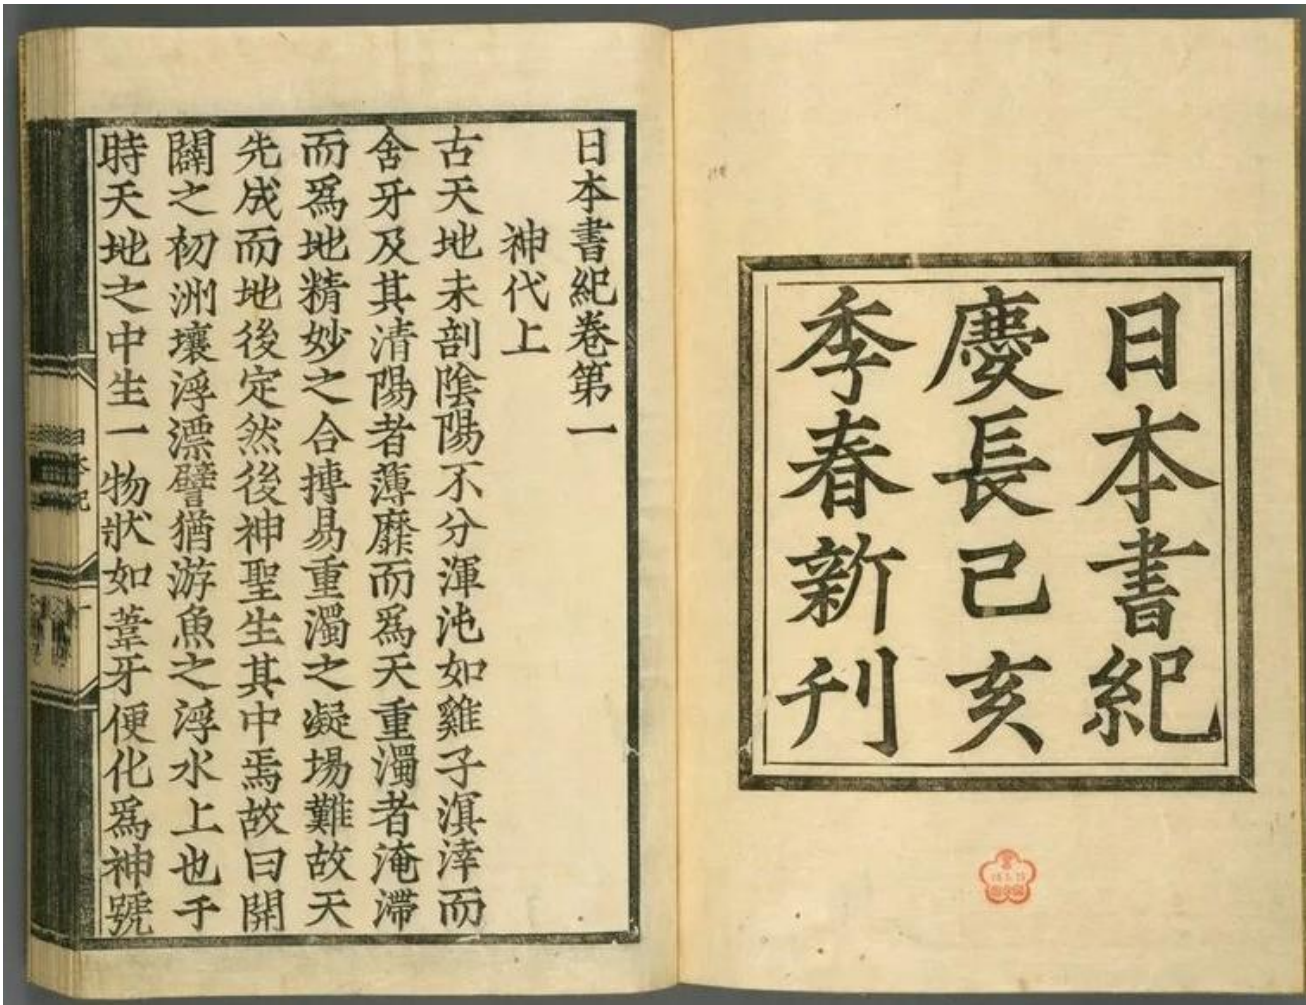 日本書紀
慶長己亥
季春新刊
日本書紀卷第一
神代上
古天地未剖陰陽不分渾沌如雞子溟涬而
含牙及其清陽者薄靡而爲天重濁者淹滯
而爲地精妙之合摶易重濁之凝埸難故天
先成而地後定然後神聖生其中焉故曰開
闢之初洲壤浮漂譬猶游魚之浮水上也于
時天地之中生一物狀如葦牙便化爲神號